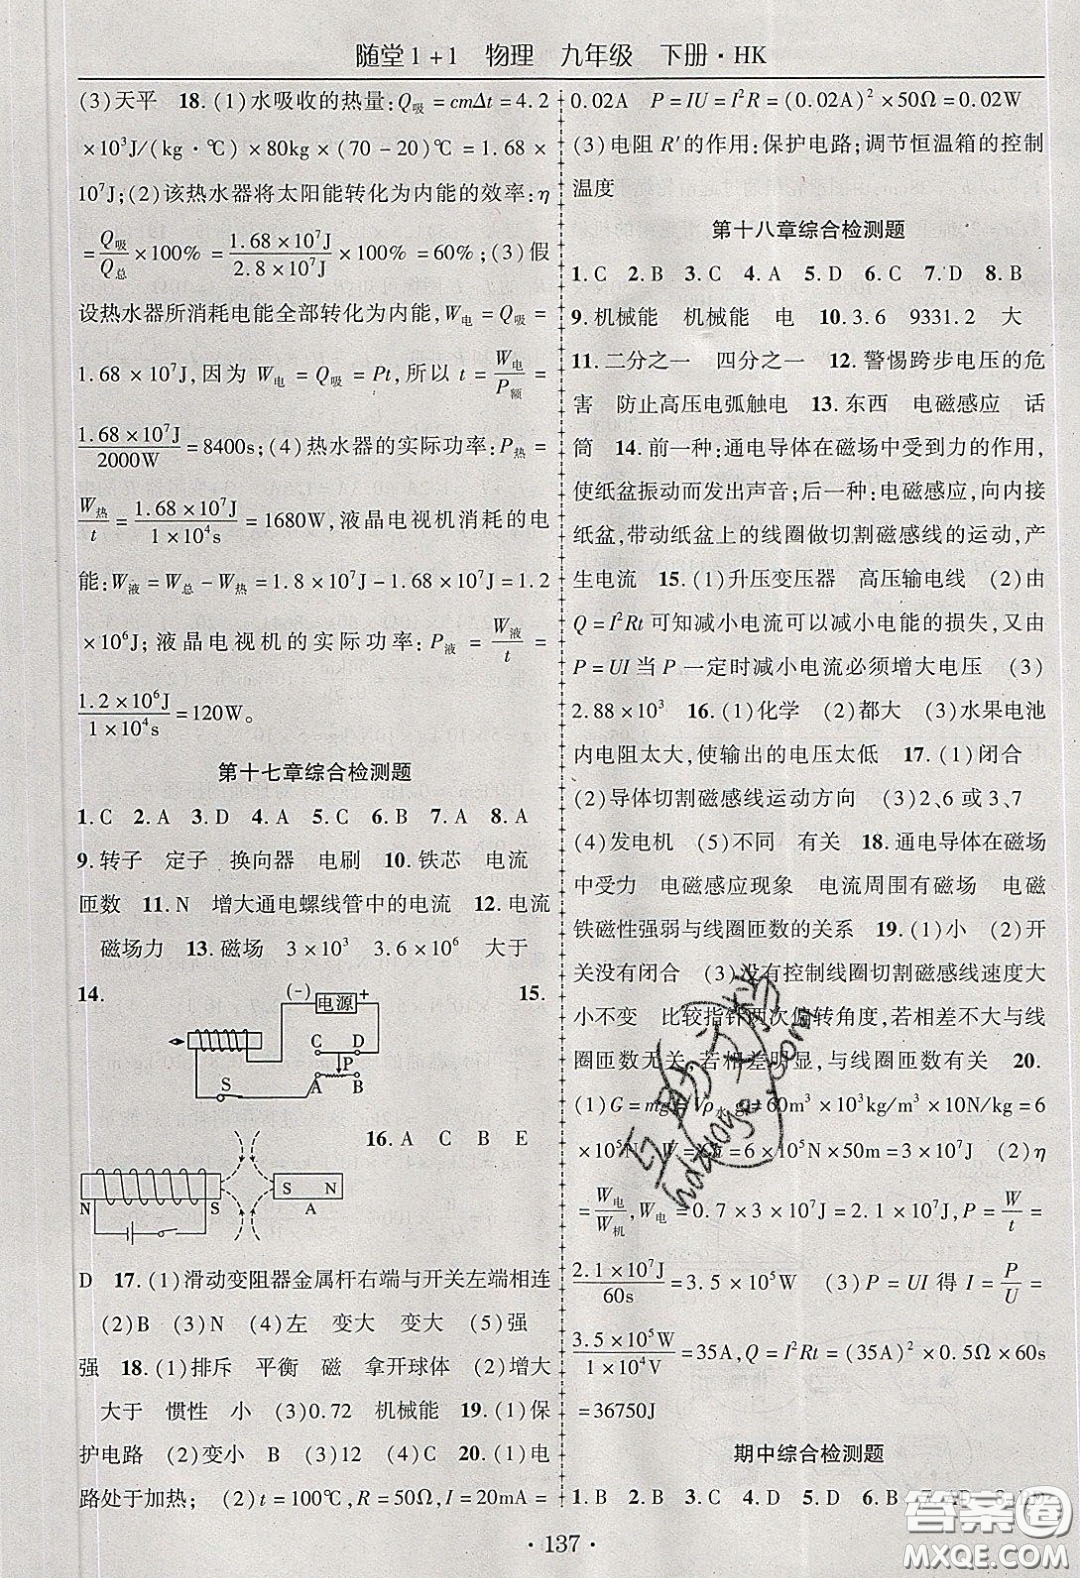 随堂1+1 物理 九年级 下册·HK
(3)天平 18.(1)水吸收的热量:Q吸=cmΔt=4.2
×10³J/(kg·℃)×80kg×(70-20)℃=1.68×
10⁷J;(2)该热水器将太阳能转化为内能的效率:η
=Q吸/Q总×100%=1.68×10⁷J/2.8×10⁷J×100%=60%;(3)假
设热水器所消耗电能全部转化为内能,W电=Q吸=
1.68×10⁷J,因为W电=Q吸=Pt,所以t=W电/P额=
1.68×10⁷J/2000W=8400s;(4)热水器的实际功率:P热=
W热/t=1.68×10⁷J/1×10⁴s=1680W,液晶电视机消耗的电
能:W液=W总-W热=1.8×10⁷J-1.68×10⁷J=1.2
×10⁶J;液晶电视机的实际功率:P液=W液/t=
1.2×10⁶J/1×10⁴s=120W。
第十七章综合检测题
1.C 2.A 3.D 4.A 5.C 6.B 7.A 8.A
9.转子 定子 换向器 电刷 10.铁芯 电流
匝数 11.N 增大通电螺线管中的电流 12.电流
磁场力 13.磁场 3×10³ 3.6×10⁶ 大于
14. 15.
(-) 电源 +
C D
P
S A B
16.A C B E
S N
N S A
D 17.(1)滑动变阻器金属杆右端与开关左端相连
(2)B (3)N (4)左 变大 变大 (5)强
强 18.(1)排斥 平衡 磁 拿开球体 (2)增大
大于 惯性 小 (3)0.72 机械能 19.(1)保
护电路 (2)变小 B (3)12 (4)C 20.(1)电
路处于加热; (2)t=100℃,R=50Ω,I=20mA=
0.02A P=IU=I²R=(0.02A)²×50Ω=0.02W
(3)电阻R′的作用:保护电路;调节恒温箱的控制
温度
第十八章综合检测题
1.C 2.B 3.C 4.A 5.D 6.C 7.D 8.B
9.机械能 机械能 电 10.3.6 9331.2 大
11.二分之一 四分之一 12.警惕跨步电压的危
害 防止高压电弧触电 13.东西 电磁感应 话
筒 14.前一种:通电导体在磁场中受到力的作用,
使纸盆振动而发出声音;后一种:电磁感应,向内按
纸盆,带动纸盆上的线圈做切割磁感线的运动,产
生电流 15.(1)升压变压器 高压输电线 (2)由
Q=I²Rt可知减小电流可以减小电能的损失,又由
P=UI当P一定时减小电流必须增大电压 (3)
2.88×10³ 16.(1)化学 (2)都大 (3)水果电池
内电阻太大,使输出的电压太低 17.(1)闭合
(2)导体切割磁感线运动方向 (3)2、6或3、7
(4)发电机 (5)不同 有关 18.通电导体在磁场
中受力 电磁感应现象 电流周围有磁场 电磁
铁磁性强弱与线圈匝数的关系 19.(1)小 (2)开
关没有闭合 (3)没有控制线圈切割磁感线速度大
小不变 比较指针两次偏转角度,若相差不大与线
圈匝数无关,若相差明显,与线圈匝数有关 20.
(1)G=mg=Vρ水g=60m³×10³kg/m³×10N/kg=6
×10⁵N W=Gh=6×10⁵N×50m=3×10⁷J (2)η
=W电/W机,W电=0.7×3×10⁷J=2.1×10⁷J,P=W/t=
2.1×10⁷J/60s=3.5×10⁵W (3)P=UI得I=P/U=
3.5×10⁵W/1×10⁴V=35A,Q=I²Rt=(35A)²×0.5Ω×60s
=36750J
期中综合检测题
1.B 2.B 3.C 4.D 5.D 6.B
·137·
答案圈
MXQE.COM